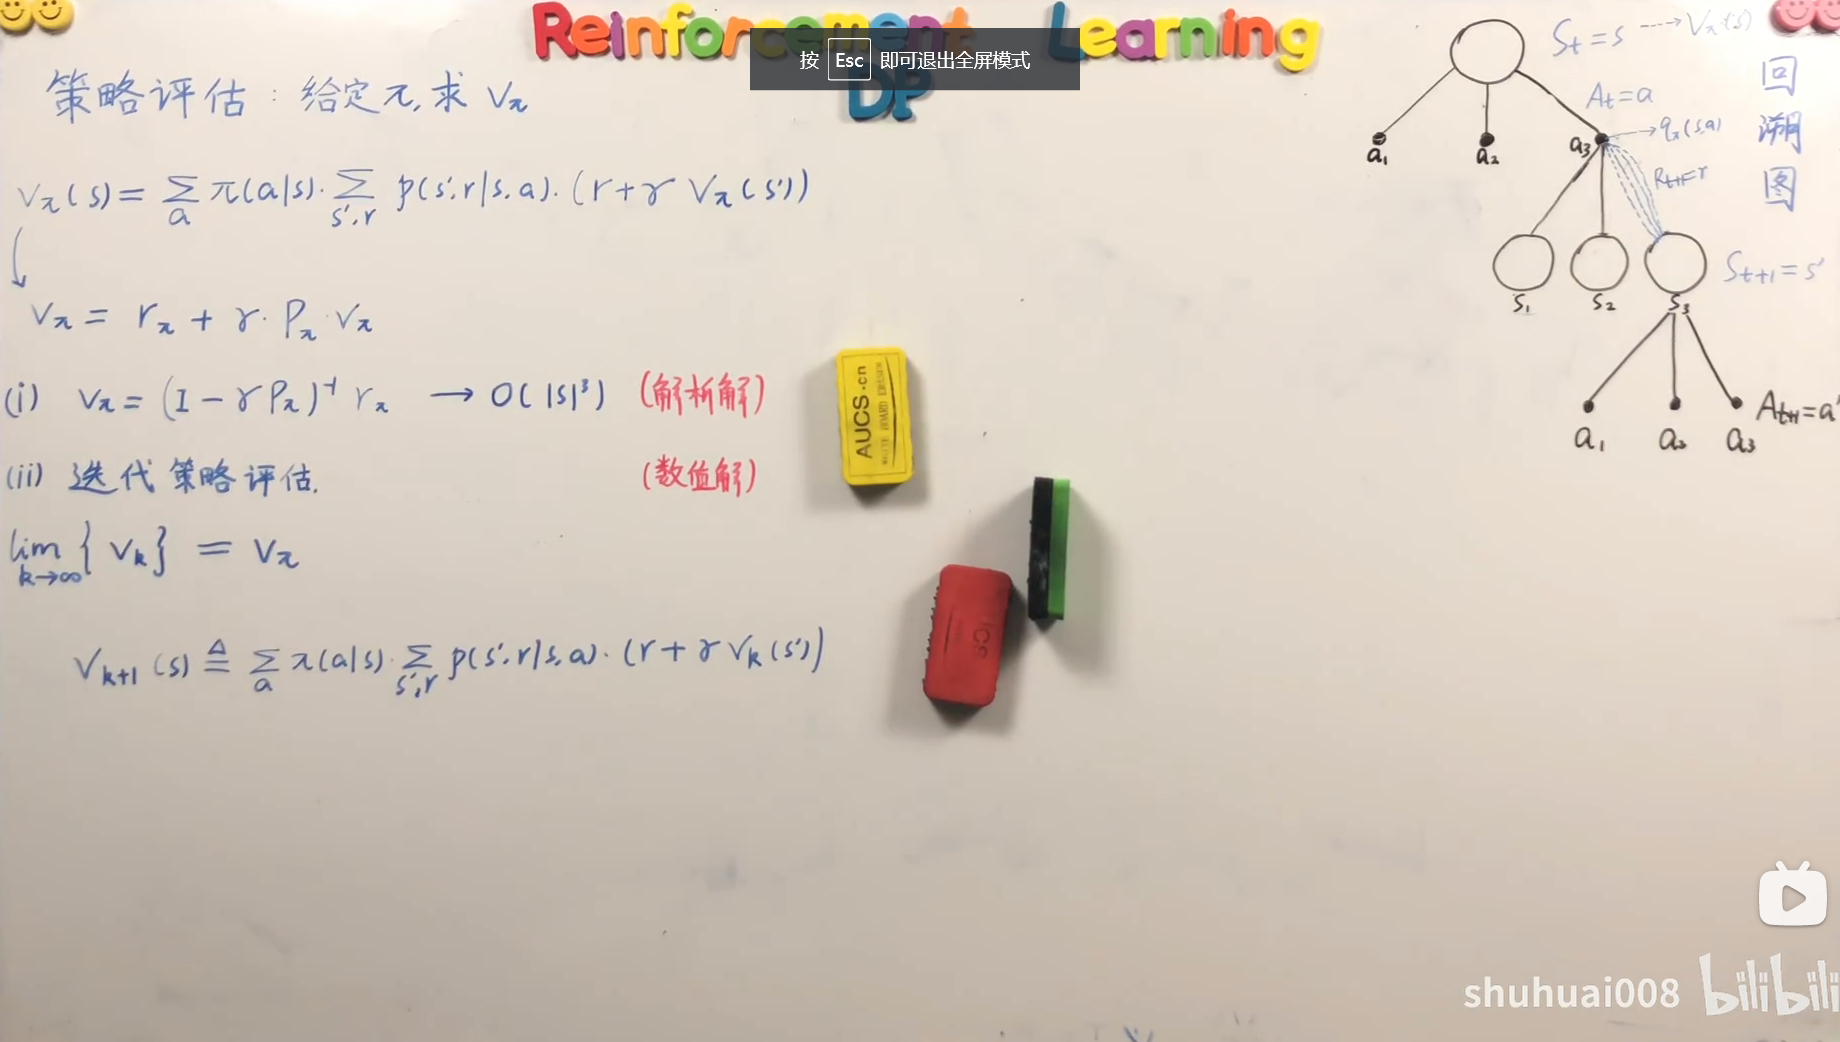 Reinforcement Learning
DP
按 Esc 即可退出全屏模式
策略评估：给定π, 求 Vπ
Vπ(s) = Σ_a π(a|s)·Σ_{s',r} p(s',r|s,a)·(r+γ Vπ(s'))
Vπ = rπ + γ·Pπ·Vπ
(i) Vπ = (I − γPπ)⁻¹ rπ → O(|S|³) (解析解)
(ii) 迭代策略评估. (数值解)
lim_{k→∞}{Vk} = Vπ
V_{k+1}(s) ≜ Σ_a π(a|s)·Σ_{s',r} p(s',r|s,a)·(r+γVk(s'))
St=s ⇢ Vπ(s)
回溯图
At=a
a1 a2 a3 → qπ(s,a)
Rt+1=r
St+1=s'
s1 s2 s3
At+1=a'
a1 a2 a3
AUCS.cn
WHITE BOARD ERASER
shuhuai008 bilibili